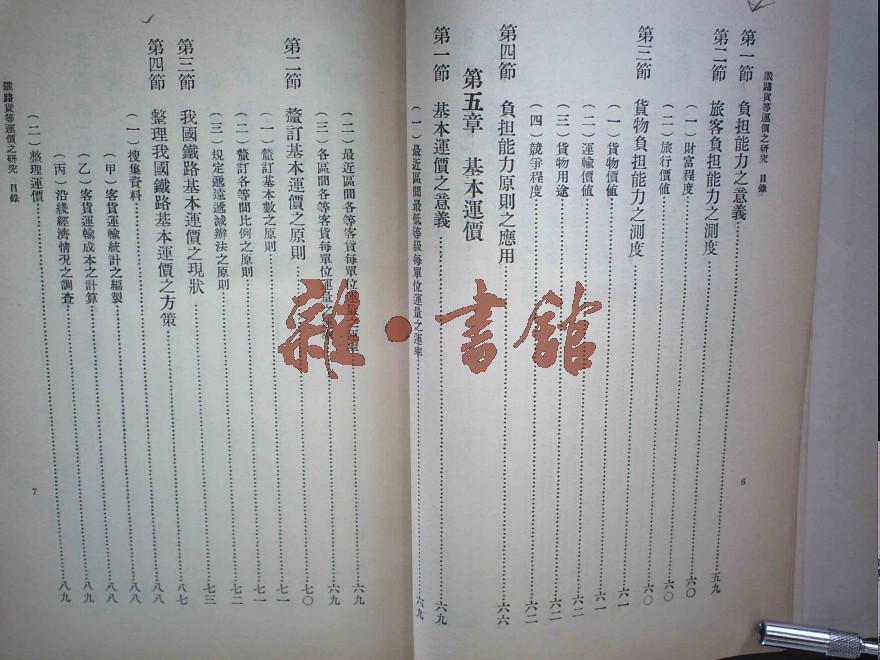 鐵路貨等運價之研究 目錄
第一節 負担能力之意義
第二節 旅客負担能力之測度……五九
（一）財富程度……六〇
（二）旅行價値……六〇
第三節 貨物負担能力之測度……六〇
（一）貨物價値……六一
（二）運輸價値……六一
（三）貨物用途……六二
（四）競爭程度……六二
第四節 負担能力原則之應用……六六
第五章 基本運價
第一節 基本運價之意義……六九
（一）最近區間最低等級每單位運量之運率……六九
6
（二）最近區間各等客貨每單位運量之運率……六九
（三）各區間各等客貨每單位運量之……六九
第二節 釐訂基本運價之原則……七〇
（一）釐訂基本數之原則……七一
（二）釐訂各等間比例之原則……七一
（三）規定遞遠遞減辦法之原則……七二
第三節 我國鐵路基本運價之現狀……七三
第四節 整理我國鐵路基本運價之方策……八七
（一）搜集資料……八八
（甲）客貨運輸統計之編製……八八
（乙）客貨運輸成本之計算……八八
（丙）沿綫經濟情況之調查……八九
（二）整理運價……八九
鐵路貨等運價之研究 目錄
7
雜·書館